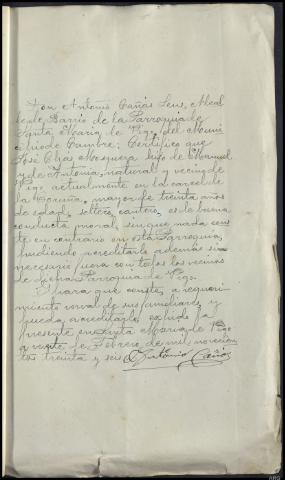 Don Antonio Cañás Sens, Alcal
de de Barrio de la Parroquia de
Santa María de Vigo, del Muni
cipio de Cambre; Certifico que
José Elías Mosquera hijo de Manuel
y de Antonia, natural y vecino de
Vigo, actualmente en la carcel de
la Coruña, mayor de treinta años
de edad, soltero, cantero, es de buena
conducta moral, sin que nada cons
te en contrario en esta Parroquia,
pudiendo acreditarlo además si
necesario fuera con todos los vecinos
de dicha Parroquia de Vigo.
Y para que conste, a requeri
miento verbal de sus familiares y
pueda acreditarlo, expido la
presente en Santa María de Vigo
a veinte de Febrero de mil novecien
tos treinta y seis Antonio Cañás